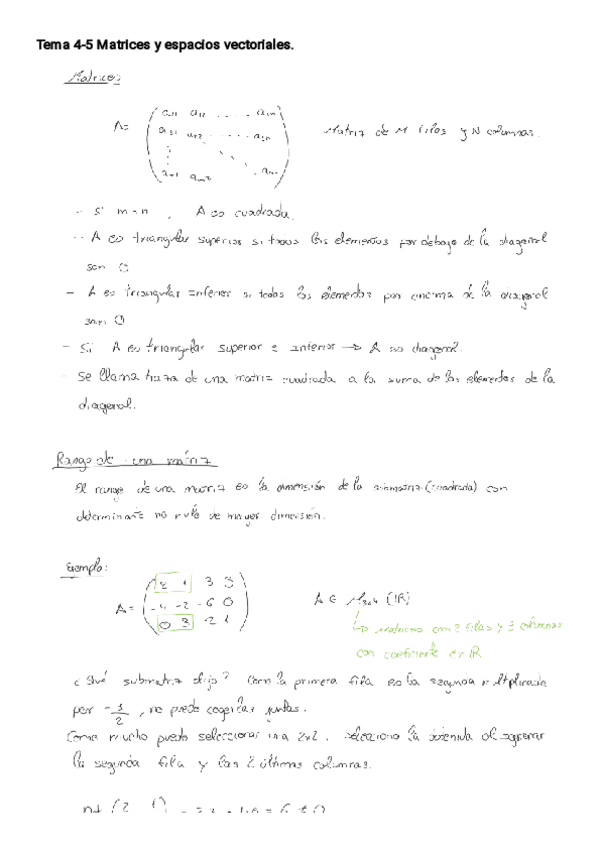 Tema 4-5 Matrices y espacios vectoriales.
Matrices
A= ( a11 a12 ..... a1n )
Matriz de M filas y N columnas.
a21 a22 ..... a2n
am1 am2 ... amn
- Si m=n, A es cuadrada.
- A es triangular superior si todos los elementos por debajo de la diagonal
son 0
- A es triangular inferior si todos los elementos por encima de la diagonal
son 0
- Si A es triangular superior e inferior → A es diagonal.
- Se llama traza de una matriz cuadrada a la suma de los elementos de la
diagonal.
Rango de una matriz
El rango de una matriz es la dimensión de la submatriz (cuadrada) con
determinante no nulo de mayor dimensión.
Ejemplo:
2 1 3 3
A= -4 -2 -6 0
0 3 -2 1
A ∈ M3x4 (IR)
↳ matrices con 3 filas y columnas
con coeficiente en IR
¿Qué submatriz elijo? Como la primera fila es la segunda multiplicada
por -1/2, no puedo cogerlas juntas.
Como mucho puedo seleccionar una 2x2. Selecciono la obtenida al suprimir
la segunda fila y las 2 últimas columnas.
(2 1)